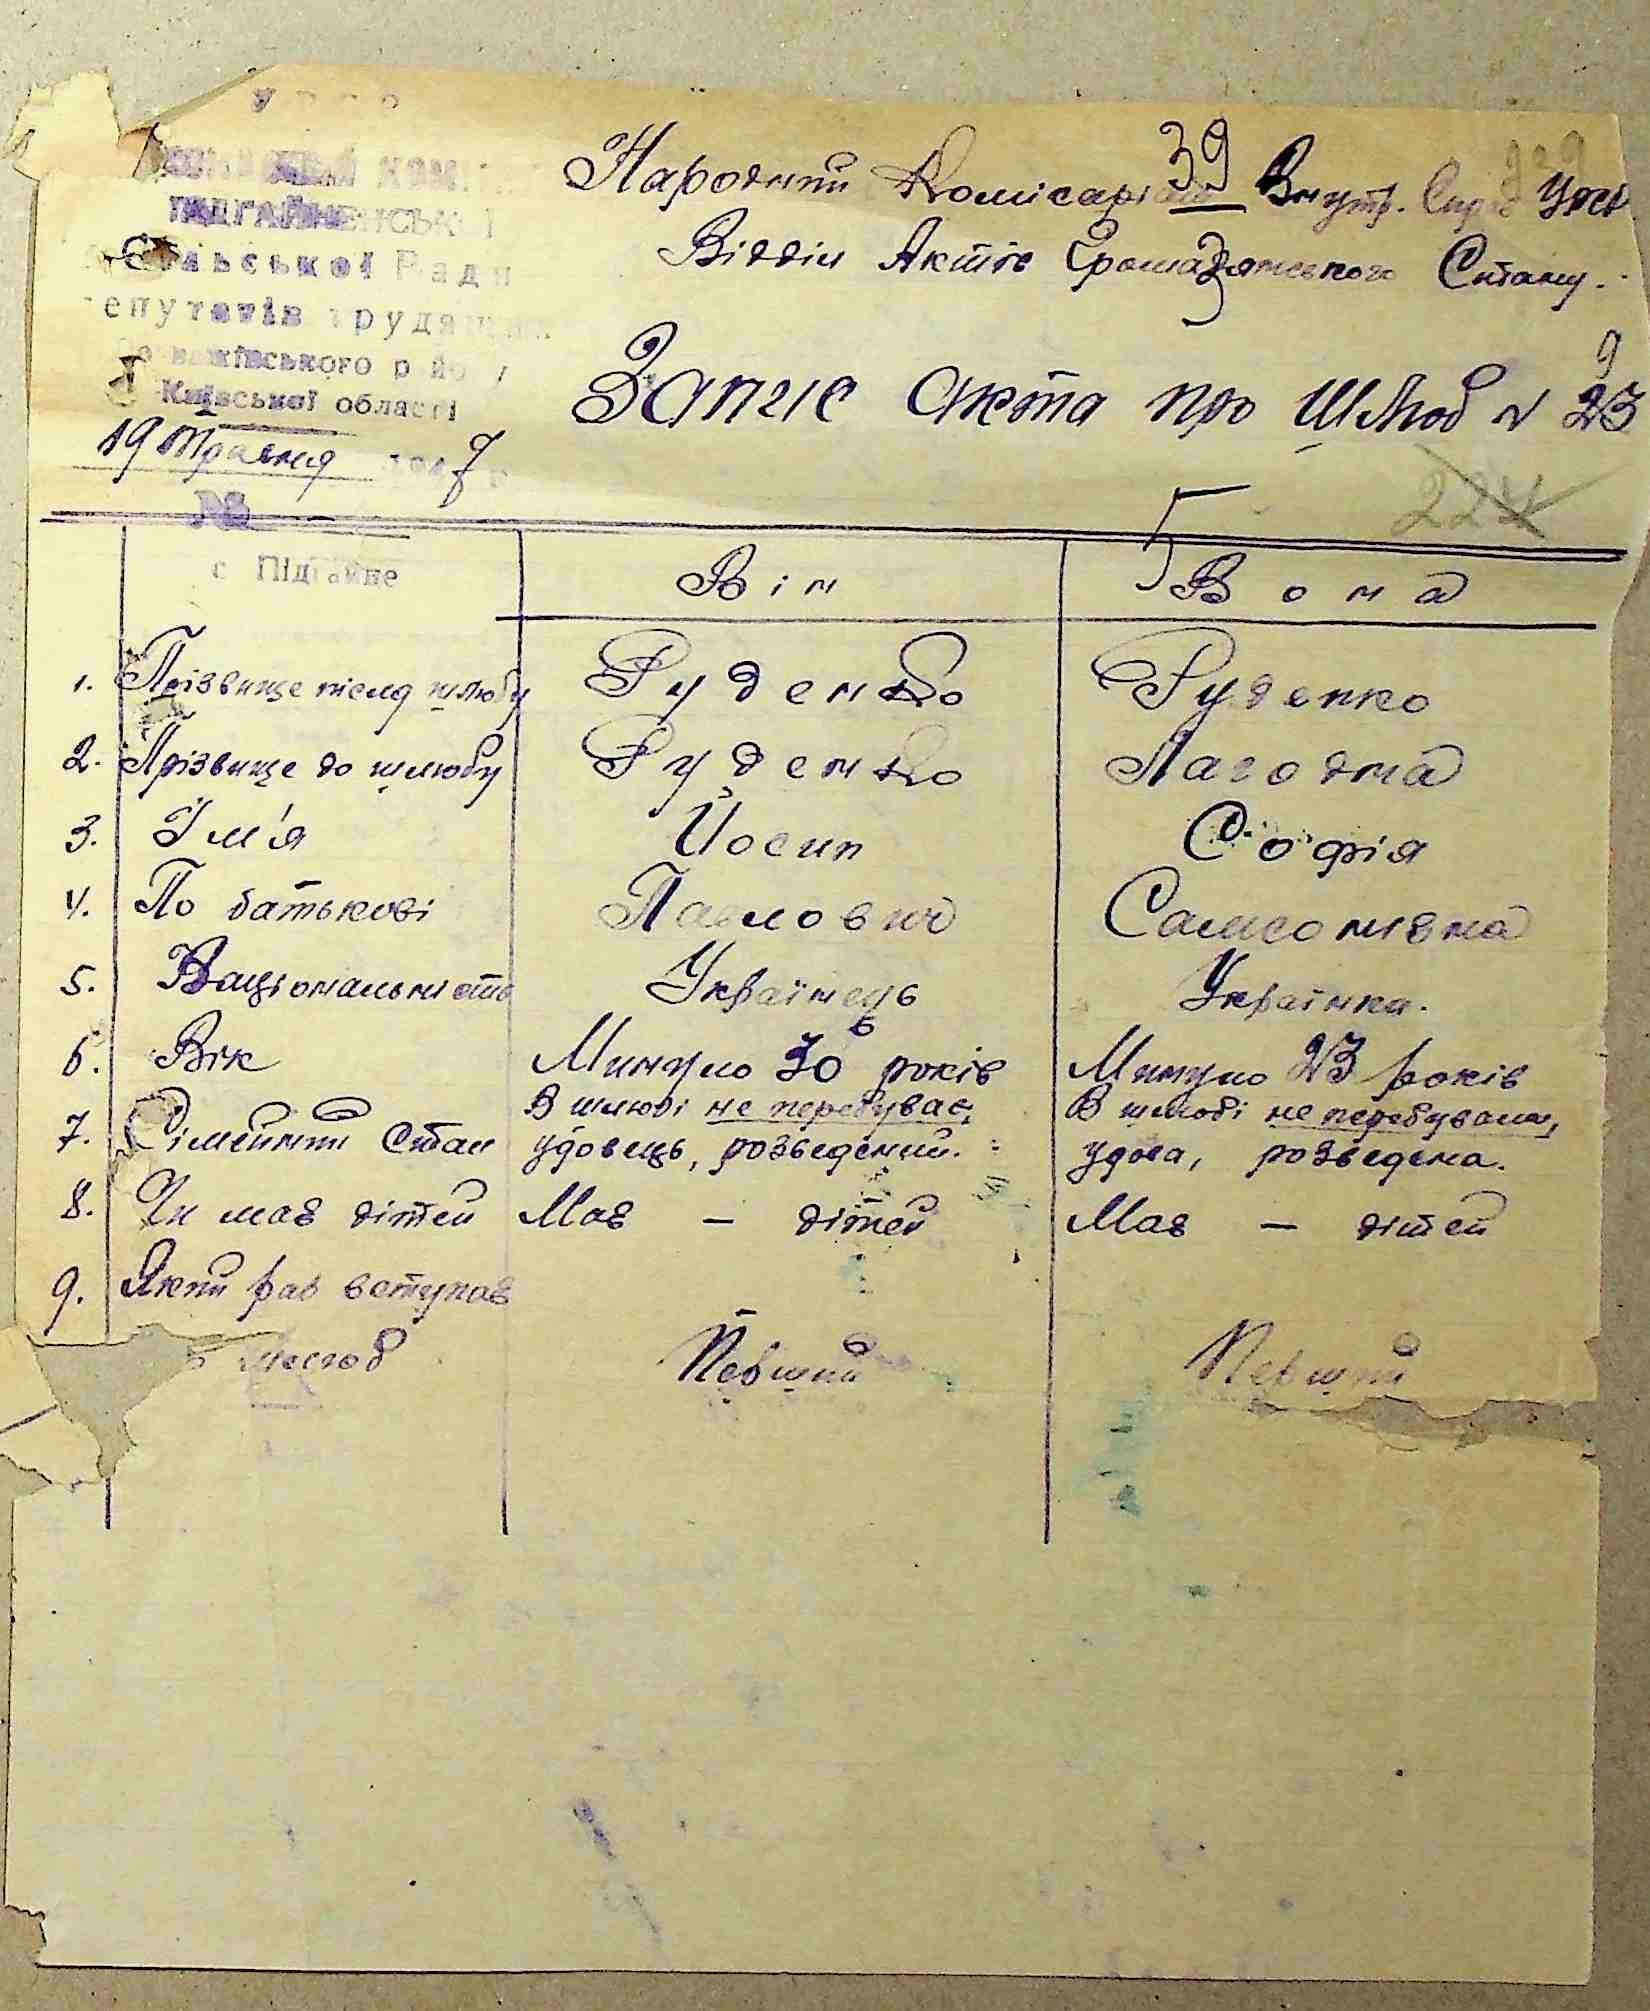 УРСР
ПІДГАЙНЕНСЬКОЇ
Сільської Ради
депутатів трудящих
Київської області
19 травня 1947 р
№
с Підгайне
39
Народний Комісаріат Внутр. Справ УРСР
Відділ Актів Громадянського Стану.
9
Запис акта про шлюб № 23
224
5
Він Вона
1. Прізвище після шлюбу Руденко Руденко
2. Прізвище до шлюбу Руденко Лагодна
3. Ім'я Йосип Софія
4. По батькові Павлович Самсонівна
5. Національність Українець Українка.
6. Вік Минуло 30 років Минуло 23 років
7. Сімейний Стан В шлюбі не перебуває, В шлюбі не перебувала,
удовець, розведений. удова, розведена.
8. Чи має дітей Має — дітей Має — дітей
9. Який раз вступає
в шлюб Перший Перший